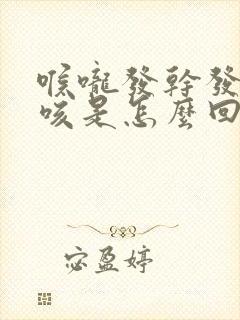 喉嚨發幹發
咳是怎麼回
宓盈婷